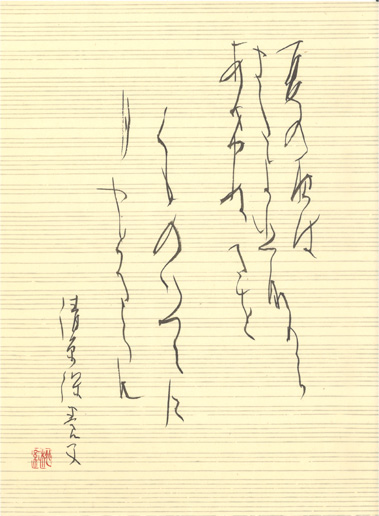 夏の夜は
またよひなから
あけぬるを
くものいつこに
月やとるらむ
清原深養父